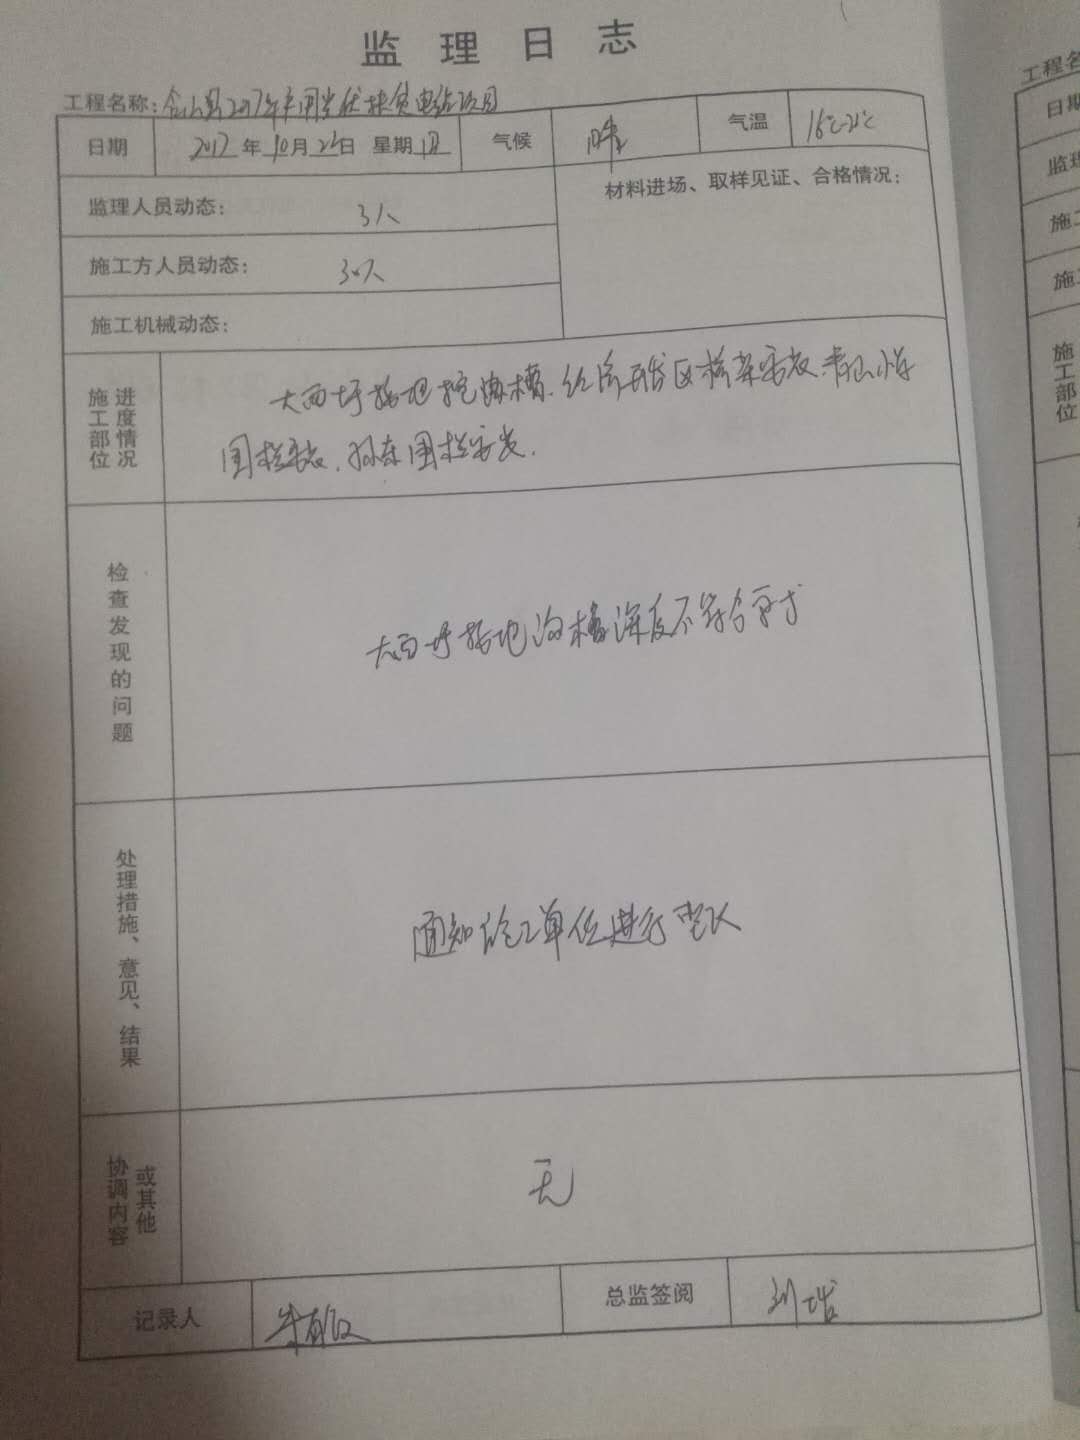 监理日志
工程名称：含山县2017年户用光伏扶贫电站项目
日期 2017年10月26日 星期四 气候 晴 气温 16℃-21℃
监理人员动态： 3人
材料进场、取样见证、合格情况：
施工方人员动态： 30人
施工机械动态：
施工部位进度情况
大西圩接地挖沟槽.经济开发区桥架安装.青山小学
围栏安装.孙东围栏安装.
检查发现的问题
大西圩接地沟槽深度不符合要求
处理措施、意见、结果
通知施工单位进行整改
协调内容或其他
无
记录人 朱
总监签阅 刘
工程名
日期
监理
施工
施工
施工部位